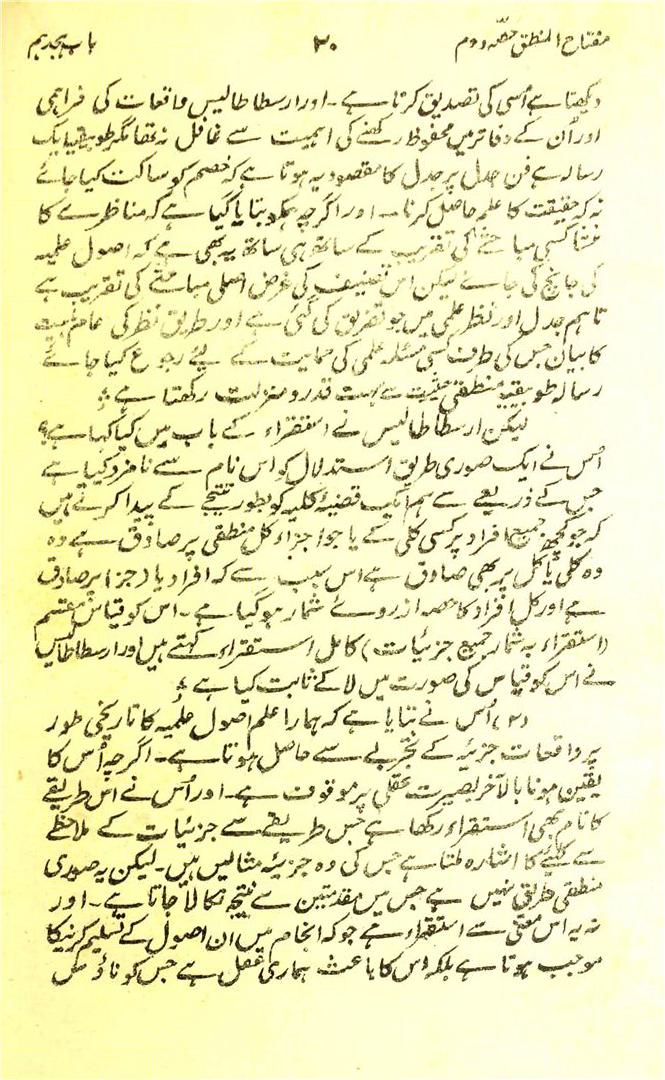 مفتاح المنطق حصہ دوم ۳۰ باب ہجدہم
دیکھتا ہے اُسی کی تصدیق کرتا ہے۔ اور ارسطاطالیس واقعات کی فراہمی
اور اُن کے دفاتر میں محفوظ رکھنے کی اہمیت سے غافل نہ تھا مگر طوبیقیا ایک
رسالہ ہے فن جدل پر جدل کا مقصود یہ ہوتا ہے کہ خصم کو ساکت کیا جائے
نہ کہ حقیقت کا علم حاصل کرنا۔ اور اگرچہ ہمکو بتایا گیا ہے کہ مناظرے کا
منشا کسی مباحثے کی تقریب کے ساتھ ہی ساتھ یہ بھی ہے کہ اصول علمیہ
کی جانچ کی جائے لیکن اس تصنیف کی غرض اصلی مباحثے کی تقریب ہے
تاہم جدل اور نظر علمی میں جو تفریق کی گئی ہے اور طریق نظر کی عام
کا بیان جس کی طرف کسی مسئلہ علمی کی حمایت کے لیئے رجوع کیا جائے
رسالہ طوبیقیہ منطقی حیثیت سے بہت قدر و منزلت رکھتا ہے
لیکن ارسطاطالیس نے استقراء کے باب میں کیا کہا ہے؟
اُس نے ایک صوری طریق استدلال کو اس نام سے نامزد کیا ہے
جس کے ذریعے سے ہم ایک قضیۂ کلیہ کو بطور نتیجے کے پیدا کرتے ہیں
کہ جو کچھ جمیع افراد پر کسی کلی کے یا جو اجزاء کل منطقی پر صادق ہے وہ
وہ کلی یا کل پر بھی صادق ہے اس سبب سے کہ افراد یا (جز) پر صادق
ہے اور کل افراد کا حصہ از روئے شمار ہوگیا ہے۔ اس کو قیاس مقسم
(استقراء بہ شمار جمیع جزئیات) کامل استقراء کہتے ہیں اور ارسطاطالیس
نے اس کو قیاس کی صورت میں لا کے ثابت کیا ہے
(۲) اُس نے بتایا ہے کہ ہمارا علم اصول علمیہ کا تاریخی طور
پر واقعات جزئیہ کے تجربے سے حاصل ہوتا ہے۔ اگرچہ اُس کا
یقین ہونا بالآخر بصیرت عقلی پر موقوف ہے۔ اور اُس نے اس طریقے
کا نام بھی استقراء رکھا ہے جس طریقے سے جزئیات کے ملاحظے
سے کلیئے کا اشارہ ملتا ہے جس کی وہ جزئیہ مثالیں ہیں۔ لیکن یہ صوری
منطقی طریق نہیں ہے جس میں مقدمتین سے نتیجہ نکالا جاتا ہے۔ اور
نہ یہ اس معنی سے استقراء ہے جو کہ انجام میں ان اصول کے تسلیم کرنیکا
موجب ہوتا ہے بلکہ اس کا باعث ہماری عقل ہے جس کو ناؤس